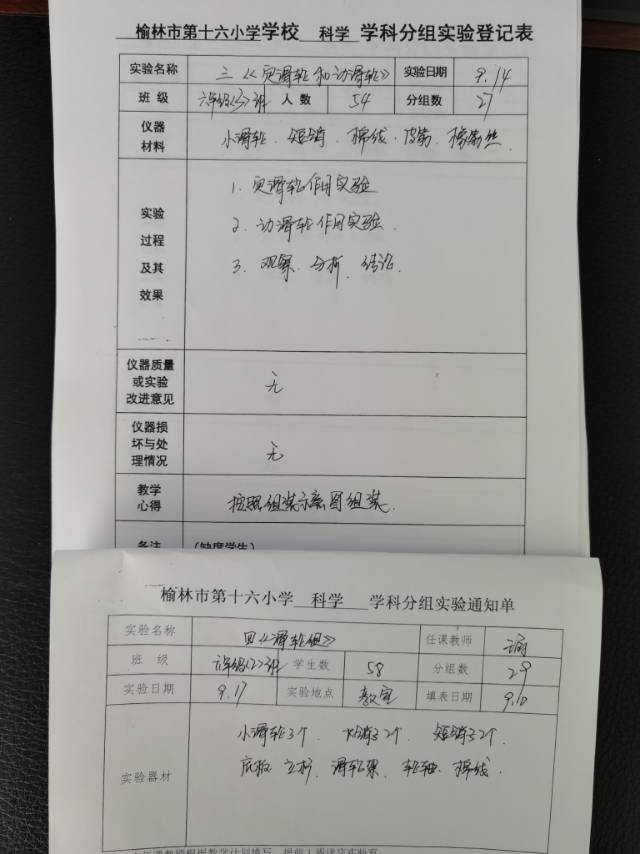 榆林市第十六小学学校 科学 学科分组实验登记表
实验名称 三《定滑轮和动滑轮》 实验日期 9.14
班 级 六年级(3)班 人 数 54 分组数 27
仪器材料 小滑轮、短销、棉线、皮筋、橡筋丝.
实验过程及其效果 1. 定滑轮作用实验
2. 动滑轮作用实验.
3. 观察、分析、结论.
仪器质量或实验改进意见 无
仪器损坏与处理情况 无
教学心得 按照组装示意图组装.
备注 (缺席学生)
榆林市第十六小学 科学 学科分组实验通知单
实验名称 四《滑轮组》 任课教师
班 级 六年级(2)班 学生数 58 分组数 29
实验日期 9.17 实验地点 教室 填表日期 9.10
实验器材 小滑轮3个、长销子2个、短销子2个、
底板、立杆、滑轮架、轮轴、棉线.